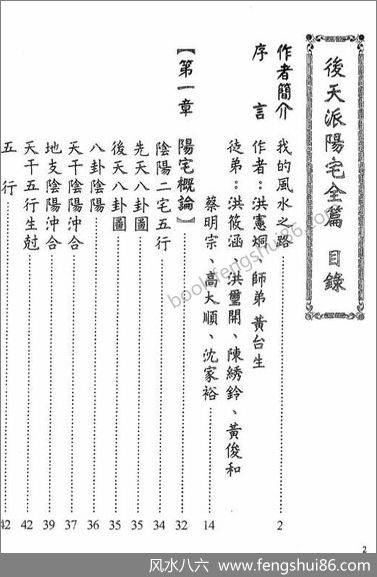 後天派陽宅全篇 目錄
作者簡介 我的風水之路 2
序言 作者：洪憲炯、師弟 黃台生
徒弟：洪筱涵、洪璽開、陳綉鈴、黃俊和
蔡明宗、高大順、沈家裕 14
【第一章 陽宅概論】 32
陰陽二宅五行 34
先天八卦圖 35
後天八卦圖 35
八卦陰陽 36
天干陰陽沖合 37
地支陰陽沖合 39
天干五行生尅 42
五行 42
bookfengshui86.com
2
风水八六 www.fengshui86.com